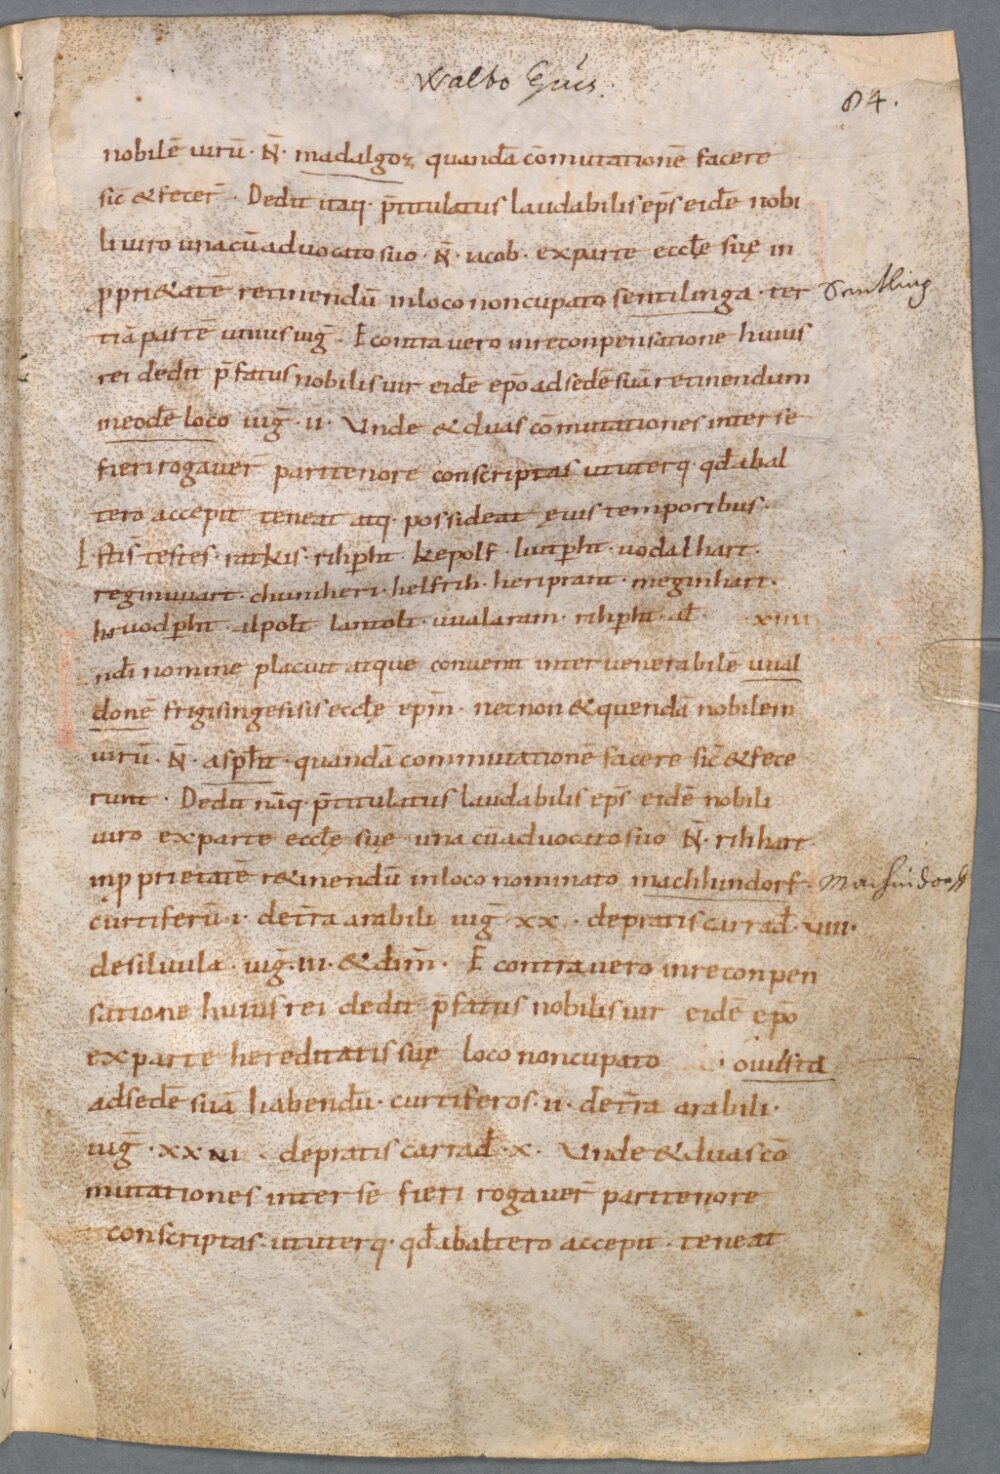 Waldo Epūs.
84.
nobilē uirū · N̄ · madalgoz quandā cōmutationē facere
sic̄ & fecer̄ · Dedit itaq· p̄titulatus laudabilis ep̄s eidē nobi
li uiro una cū aduocato suo · N̄ · ucob · ex parte eccłe suę in
ꝓpri&atē retinendū in loco noncupato sentilinga · ter
Sentling
tiā partē unius iug̃ · E contra uero in reconpensatione huius
rei dedit p̄fatus nobilis uir eidē ep̄o ad sedē suā retinendum
in eodē loco iug̃ · II · Unde & duas cōmutationes inter se
fieri rogauer̄ pari tenore conscriptas ut uterq· qđ ab al
tero accepit teneat atq· possideat ęuis temporibus ·
Isti s testes · ratkis · rihpħt · kepolf · liutpħt · uodalhart ·
reginuuart · chuniheri · helfrih · heriprant · meginhart ·
hruodpħt · alpolt · lantolt · uualaram · rihpħt · ał
XIIII
In dī nomine placuit atque conuenit inter uenerabilē uual
donē frigisingensisis eccłę ep̄m · necnon & quendā nobilem
uirū · N̄ · aspħt · quandā commutationē facere sic̄ & fece
runt · Dedit nāq· p̄titulatus laudabilis ep̄s eidē nobili
uiro ex parte eccłę suę una cū aduocato suo N̄ · rihhart ·
in ꝓprietatē r&inendū in loco nominato machlundorf ·
curtiferū · I · de tr̄ra arabili iug̃ · XX · de pratis carrađ · VIIII ·
de siluula · iug̃ · III · & dim̄ · E contra uero in reconpen
satione huius rei dedit p̄fatus nobilis uir eidē ep̄o
ex parte hereditatis suę loco noncupato
ad sedē suā habendū · curtiferos · II · de tr̄ra arabili ·
iug̃ · de pratis carrađ · X · Unde & duas cō
mutationes inter se fieri rogauer̄ pari tenore
conscriptas · ut uterq· qđ ab altero accepit · teneat